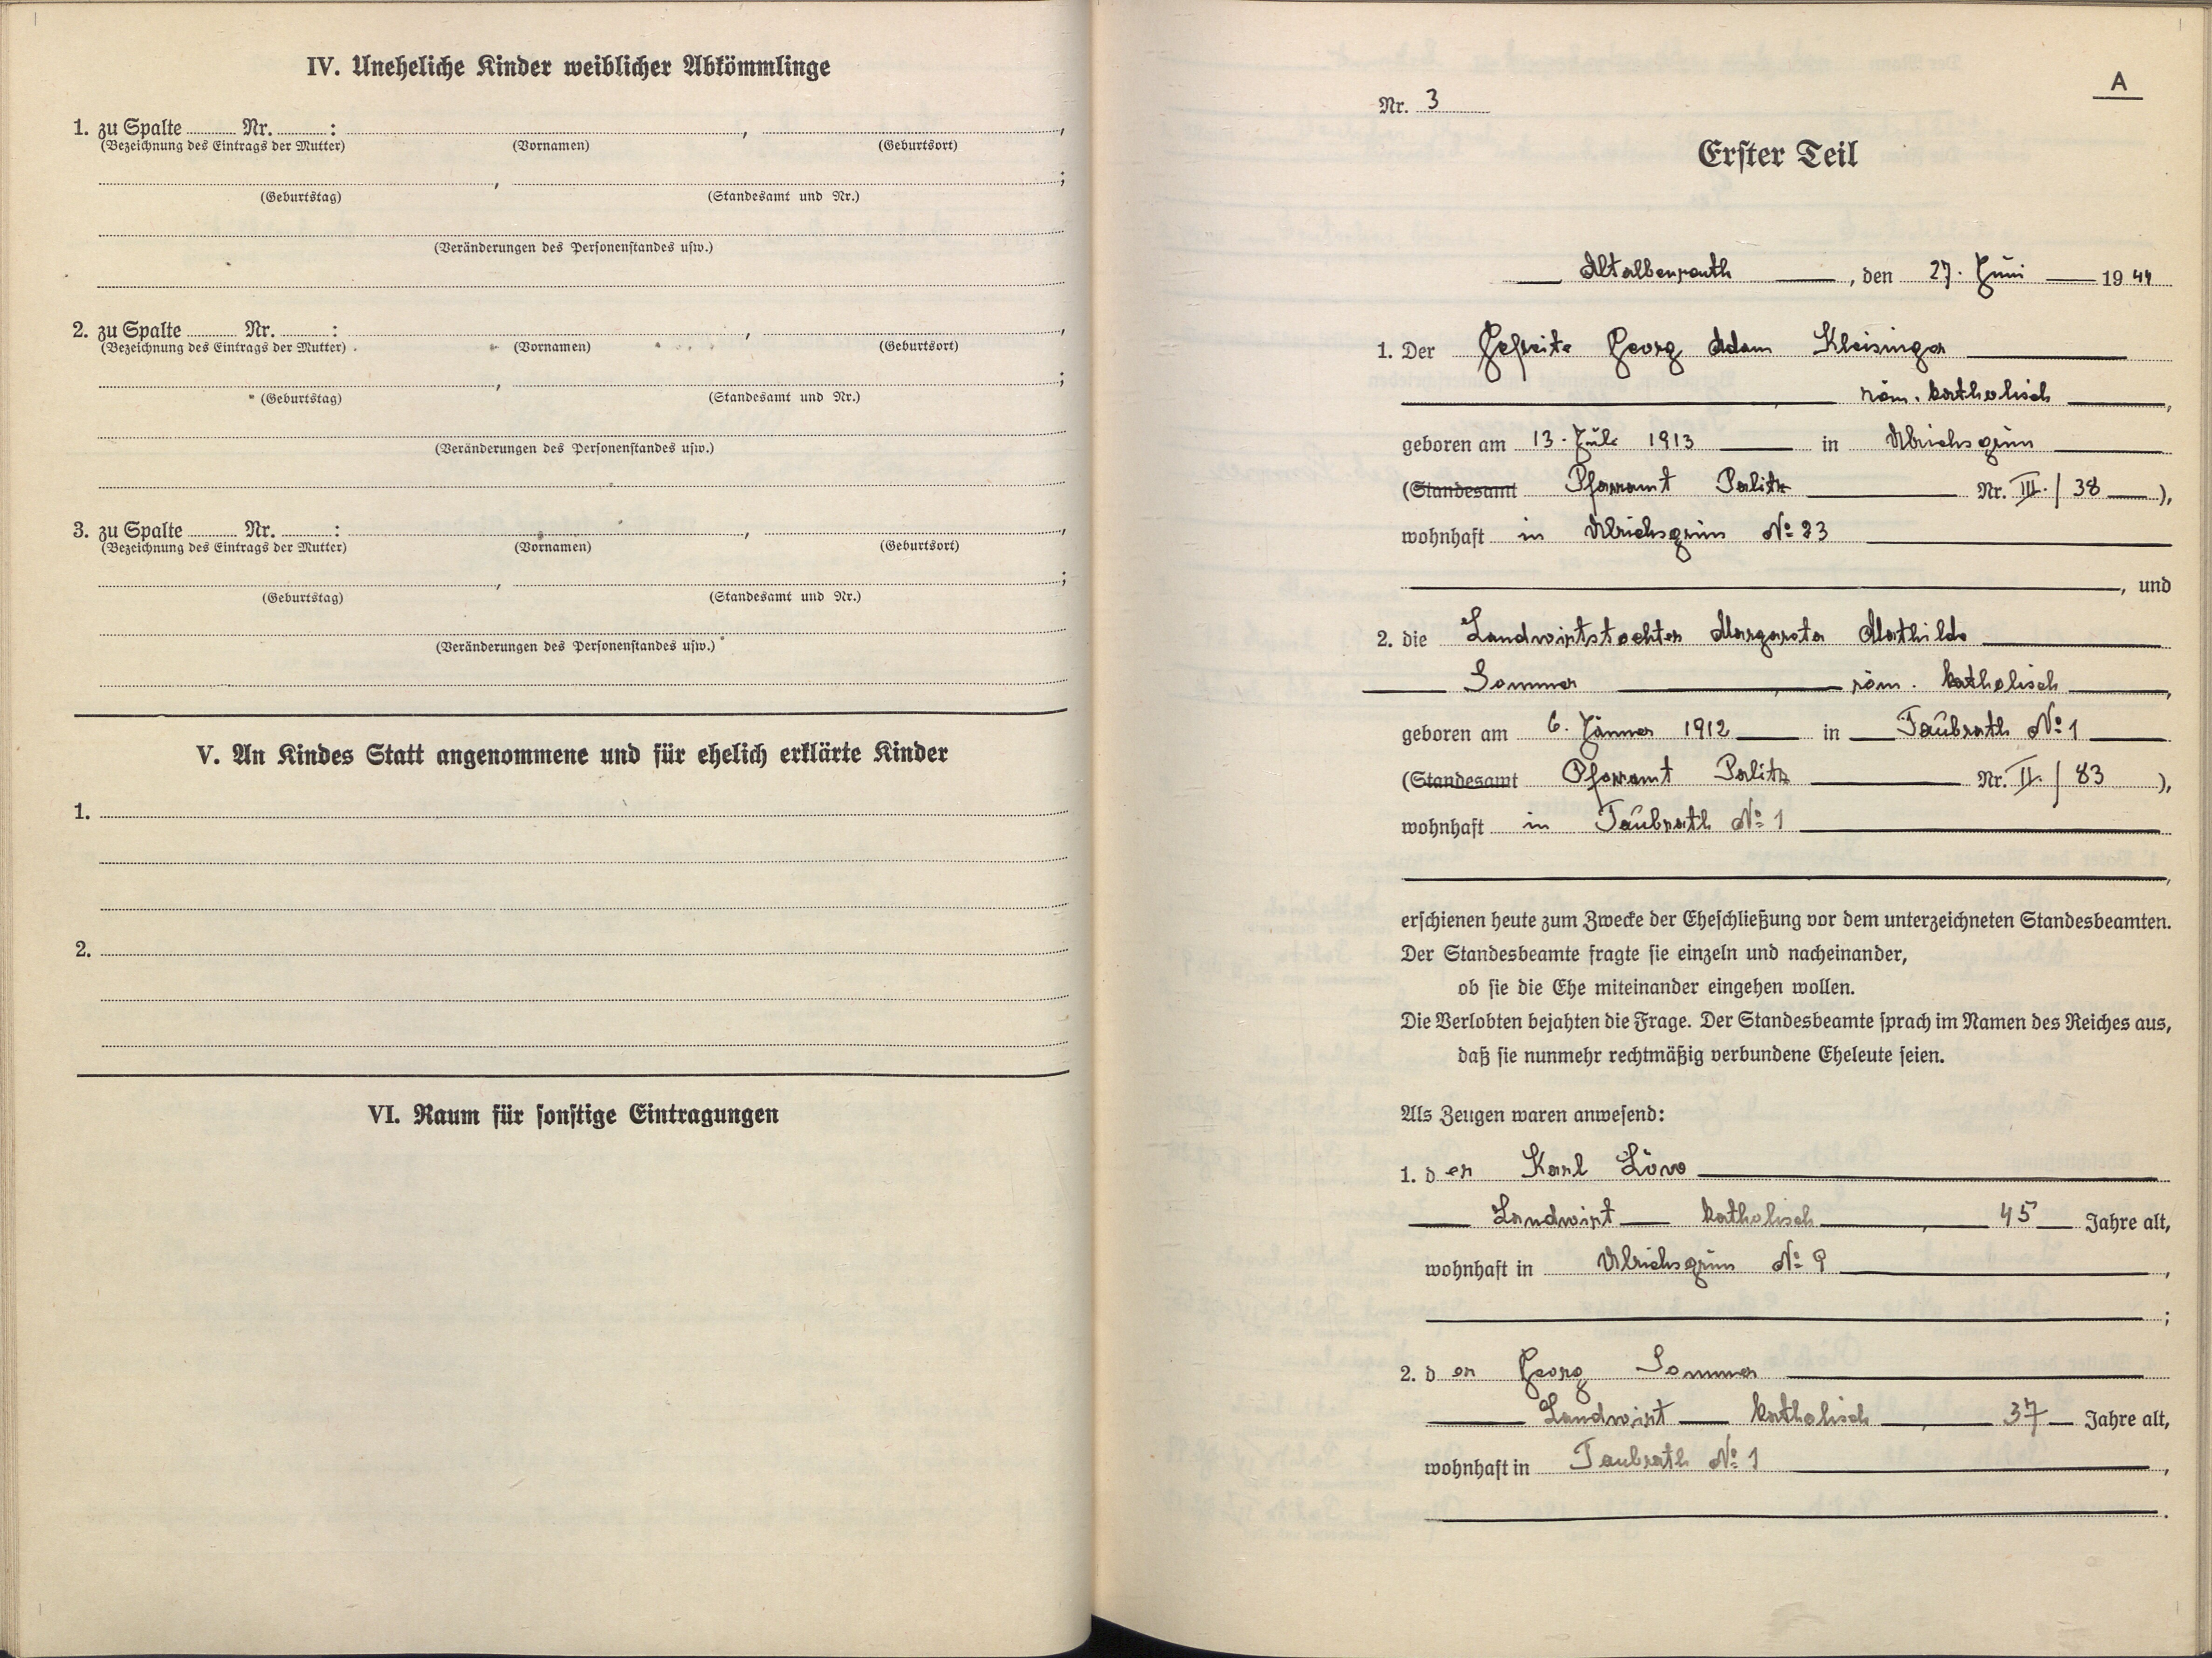 IV. Uneheliche Kinder weiblicher Abkömmlinge
1. zu Spalte Nr. : , ,
(Bezeichnung des Eintrags der Mutter) (Vornamen) (Geburtsort)
, ;
(Geburtstag) (Standesamt und Nr.)
(Veränderungen des Personenstandes usw.)
2. zu Spalte Nr. : , ,
(Bezeichnung des Eintrags der Mutter) (Vornamen) (Geburtsort)
, ;
(Geburtstag) (Standesamt und Nr.)
(Veränderungen des Personenstandes usw.)
3. zu Spalte Nr. : , ,
(Bezeichnung des Eintrags der Mutter) (Vornamen) (Geburtsort)
, ;
(Geburtstag) (Standesamt und Nr.)
(Veränderungen des Personenstandes usw.)
V. An Kindes Statt angenommene und für ehelich erklärte Kinder
1.
2.
VI. Raum für sonstige Eintragungen
A
Nr. 3
Erster Teil
Altalbenreuth, den 27. Juni 1944
1. Der Gefreite Georg Adam Kleisinger
röm. katholisch,
geboren am 13. Juli 1913 in Ulrichsgrün
(Standesamt Pfarramt Palitz Nr. III. / 38),
wohnhaft in Ulrichsgrün № 23
, und
2. die Landwirtstochter Margareta Mathilde
Sommer röm. katholisch,
geboren am 6. Jänner 1912 in Taubrath № 1
(Standesamt Pfarramt Palitz Nr. II. / 83),
wohnhaft in Taubrath № 1
,
erschienen heute zum Zwecke der Eheschließung vor dem unterzeichneten Standesbeamten.
Der Standesbeamte fragte sie einzeln und nacheinander,
ob sie die Ehe miteinander eingehen wollen.
Die Verlobten bejahten die Frage. Der Standesbeamte sprach im Namen des Reiches aus,
daß sie nunmehr rechtmäßig verbundene Eheleute seien.
Als Zeugen waren anwesend:
1. der Karl Löw
Landwirt katholisch, 45 Jahre alt,
wohnhaft in Ulrichsgrün № 9,
;
2. der Georg Sommer
Landwirt katholisch, 37 Jahre alt,
wohnhaft in Taubrath № 1,
.